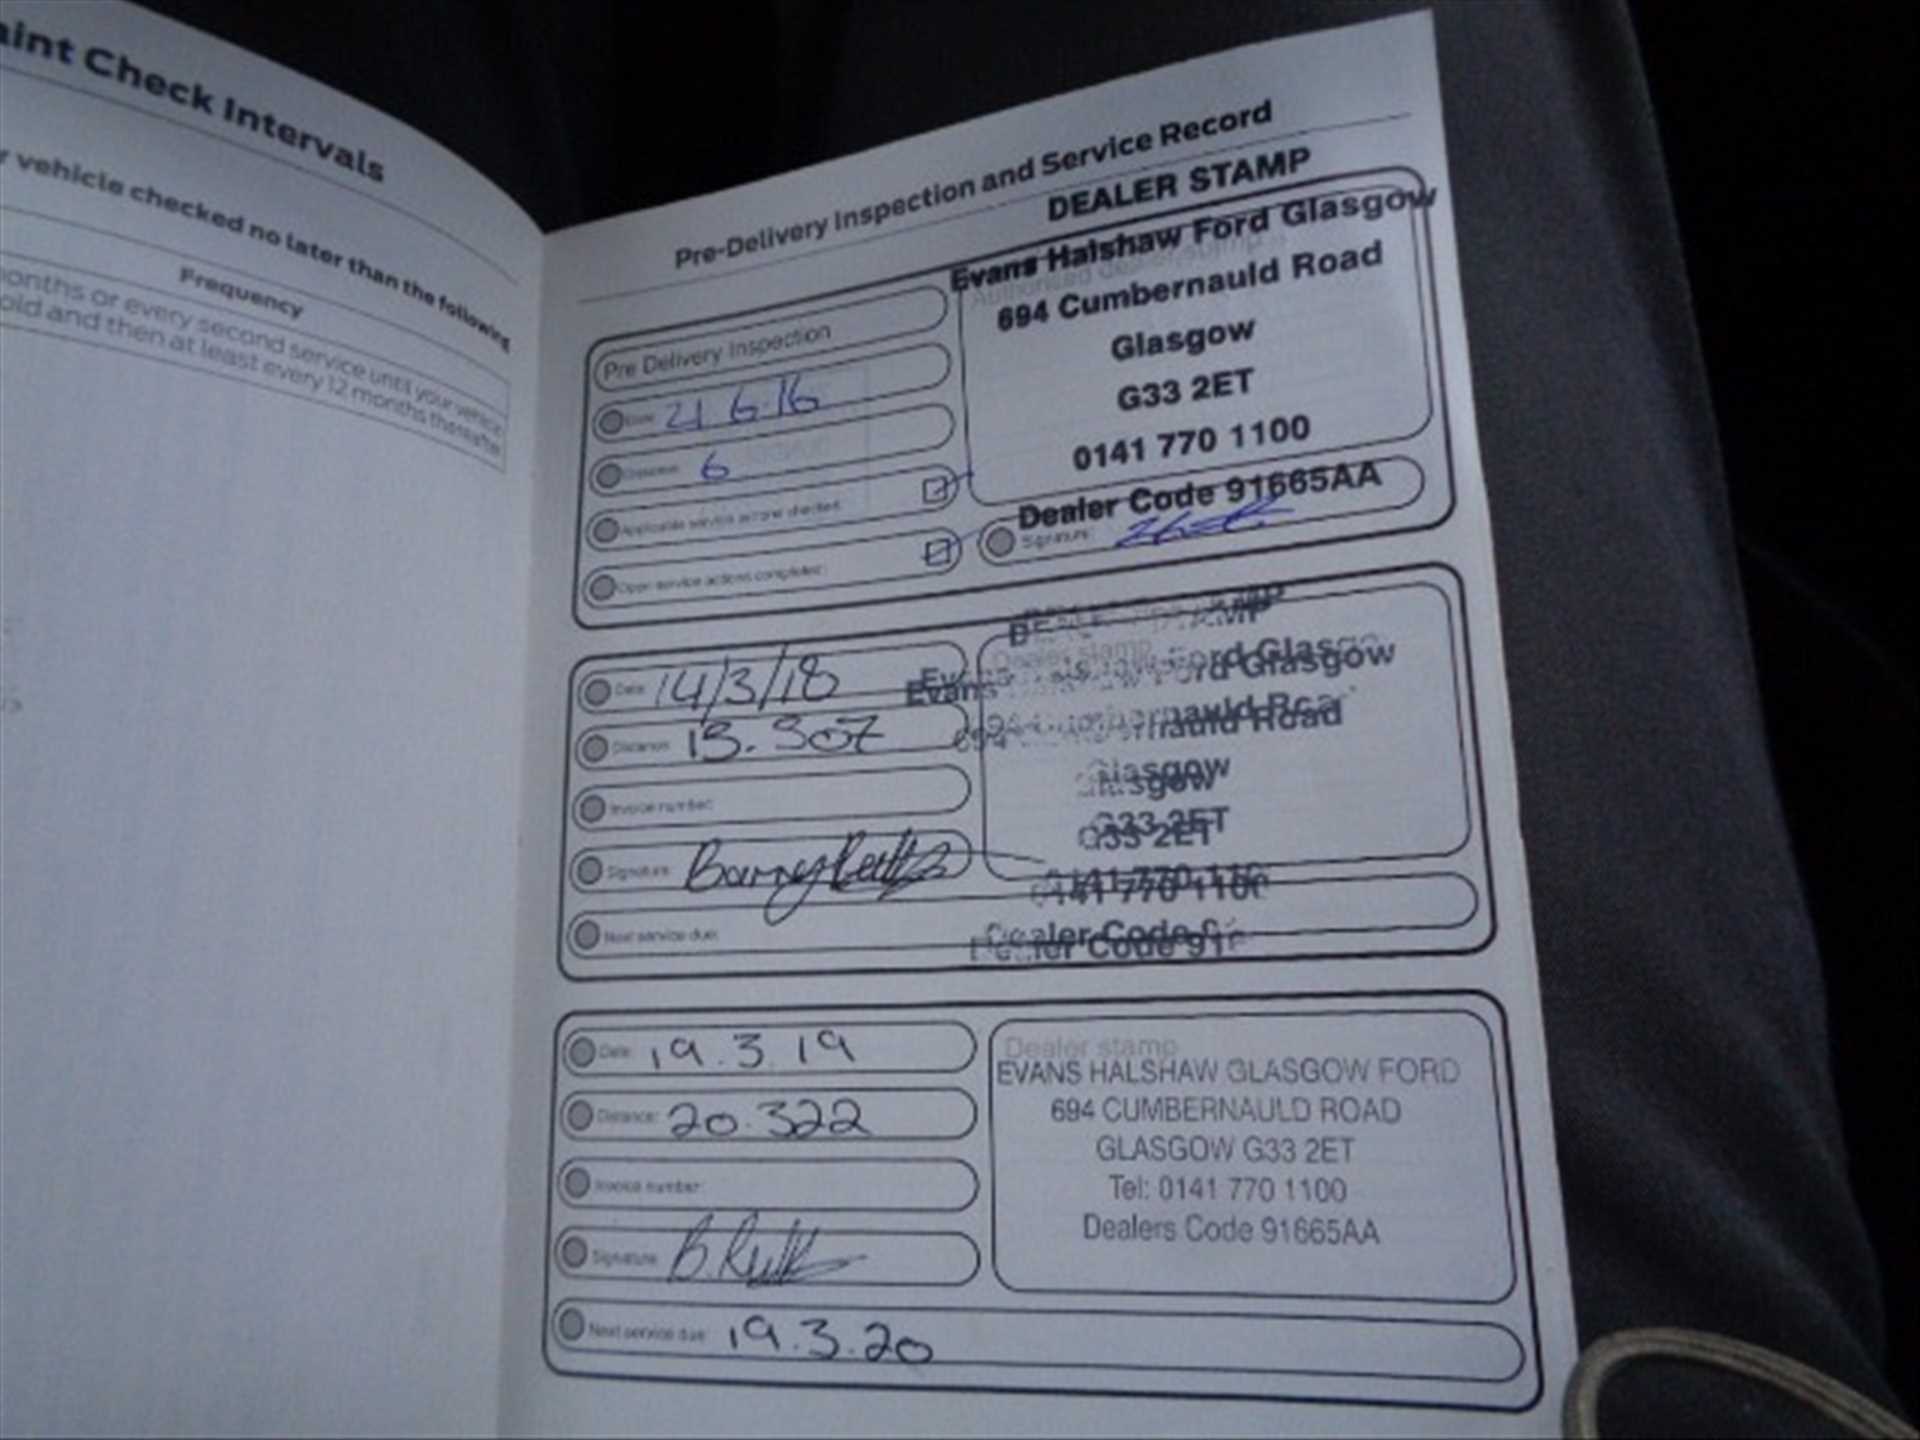 aint Check Intervals
r vehicle checked no later than the following
Frequency
onths or every second service until your vehicle
old and then at least every 12 months thereafter
Pre-Delivery Inspection and Service Record
DEALER STAMP
Evans Halshaw Ford Glasgow
Authorised dealer stamp
694 Cumbernauld Road
Glasgow
G33 2ET
0141 770 1100
Dealer Code 91665AA
Pre Delivery Inspection
Date: 21 6.16
Distance: 6
Applicable service actions checked:
Open service actions completed:
Signature:
Dealer stamp
Evans Ford Glasgow
694 Cumbernauld Road
Glasgow
G33 2ET
0141 770 1100
Dealer Code 91
Date: 14/3/18
Distance: 13.307
Invoice number:
Signature: Barry
Next service due:
Date: 19.3.19
Distance: 20.322
Invoice number:
Signature: B.
Next service due: 19.3.20
Dealer stamp
EVANS HALSHAW GLASGOW FORD
694 CUMBERNAULD ROAD
GLASGOW G33 2ET
Tel: 0141 770 1100
Dealers Code 91665AA